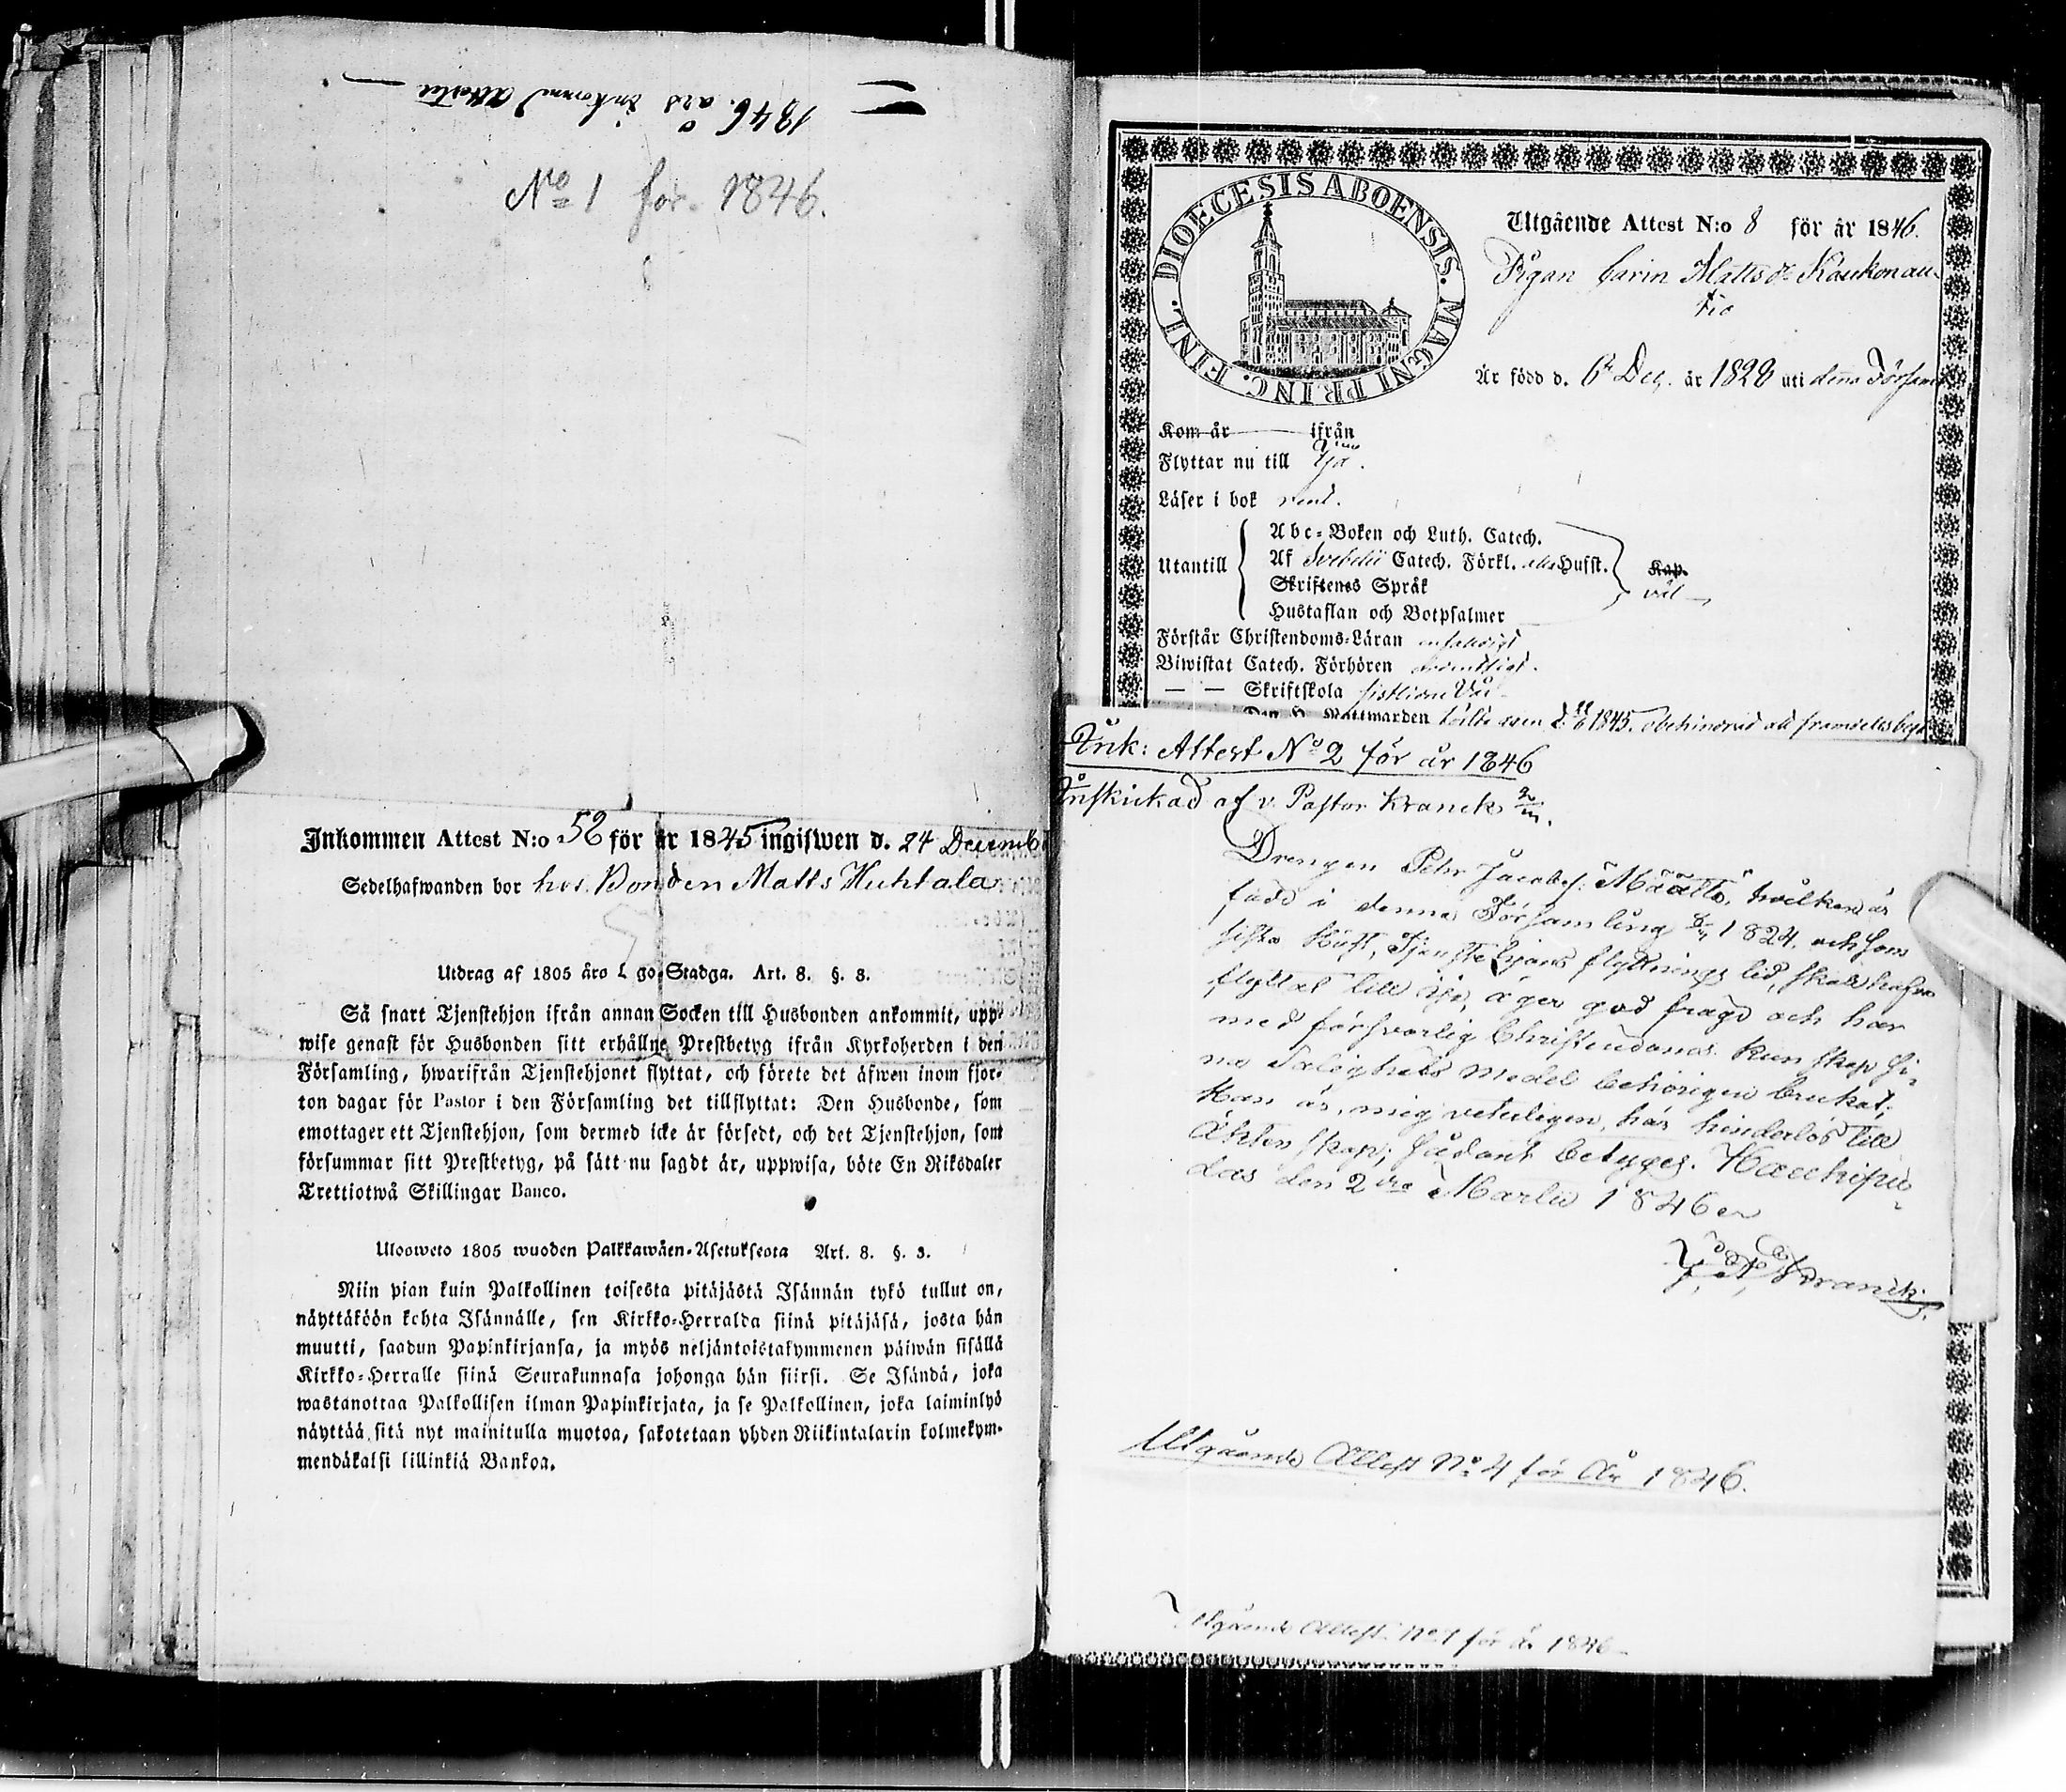 1846. års inkomne Attester
No 1 för 1846.
Inkommen Attest N:o 52 för år 1845 ingifwen d. 24 Decemb
Sedelhafwanden bor hos Bonden Matts Huhtala
Utdrag af 1805 års Lego-Stadga. Art. 8. §. 3.
Så snart Tjenstehjon ifrån annan Socken till Husbonden ankommit, upp-
wise genast för Husbonden sitt erhållne Prestbetyg ifrån Kyrkoherden i den
Församling, hwarifrån Tjenstehjonet flyttat, och förete det äfwen inom fjor-
ton dagar för Pastor i den Församling det tillflyttat: Den Husbonde, som
emottager ett Tjenstehjon, som dermed icke är försedt, och det Tjenstehjon, som
försummar sitt Prestbetyg, på sätt nu sagdt är, uppwisa, böte En Riksdaler
Trettiotwå Skillingar Banco.
Ulosweto 1805 wuoden Palkkawäen-Asetuksesta Art. 8. §. 3.
Niin pian kuin Palkollinen toisesta pitäjästä Isännän tykö tullut on,
näyttäköön kohta Isännälle, sen Kirkko-Herralda siinä pitäjäsä, josta hän
muutti, saadun Papinkirjansa, ja myös neljäntoistakymmenen päiwän sisällä
Kirkko-Herralle siinä Seurakunnasa johonga hän siirsi. Se Isändä, joka
wastanottaa Palkollisen ilman Papinkirjata, ja se Palkollinen, joka laiminlyö
näyttää sitä nyt mainitulla muotoa, sakotetaan yhden Riikintalarin kolmekym-
mendäkaksi killinkiä Bankoa.
DIOECESIS ABOENSIS. MAGNI PRINC. FINL.
Utgående Attest N:o 8 för år 1846.
Pigan Carin Mattsdr Kaukonau-
tio
Är född d. 6te Dec. år 1828 uti denna Försam
Kom år ifrån
Flyttar nu till Ijo.
Läser i bok rent.
Abc-Boken och Luth. Catech.
Utantill Af Svebelii Catech. Förkl. Husst. Kap.
Skriftenes Språk väl
Hustaflan och Botpsalmer
Förstår Christendoms-Läran enfaldigt
Biwistat Catech. Förhören ordentligt.
— — Skriftskola
Den H. Nattwarden 1845. obehindrad att framdeles
Ink: Attest No 2 för år 1846
Inskickad af v. Pastor Kranck
Drengen Petr Jacobss: Määttä, hvilken är
född i denna Församling 1824. och som
sista höst, Tjenstehjons flyttnings tid, skall hafva
flyttat till Ijo, äger god frägd och har
med försvarlig Christendoms kunskap si-
na Salighets medel behörigen brukat;
Han är, mig veterligen, här hinderlös till
Äktenskap; sådant betygas. Haukipu-
das den 2dra Martii 1846
Kranck.
Utgående Attest No 4 för År 1846.
Utgående Attest No 1 för år 1846